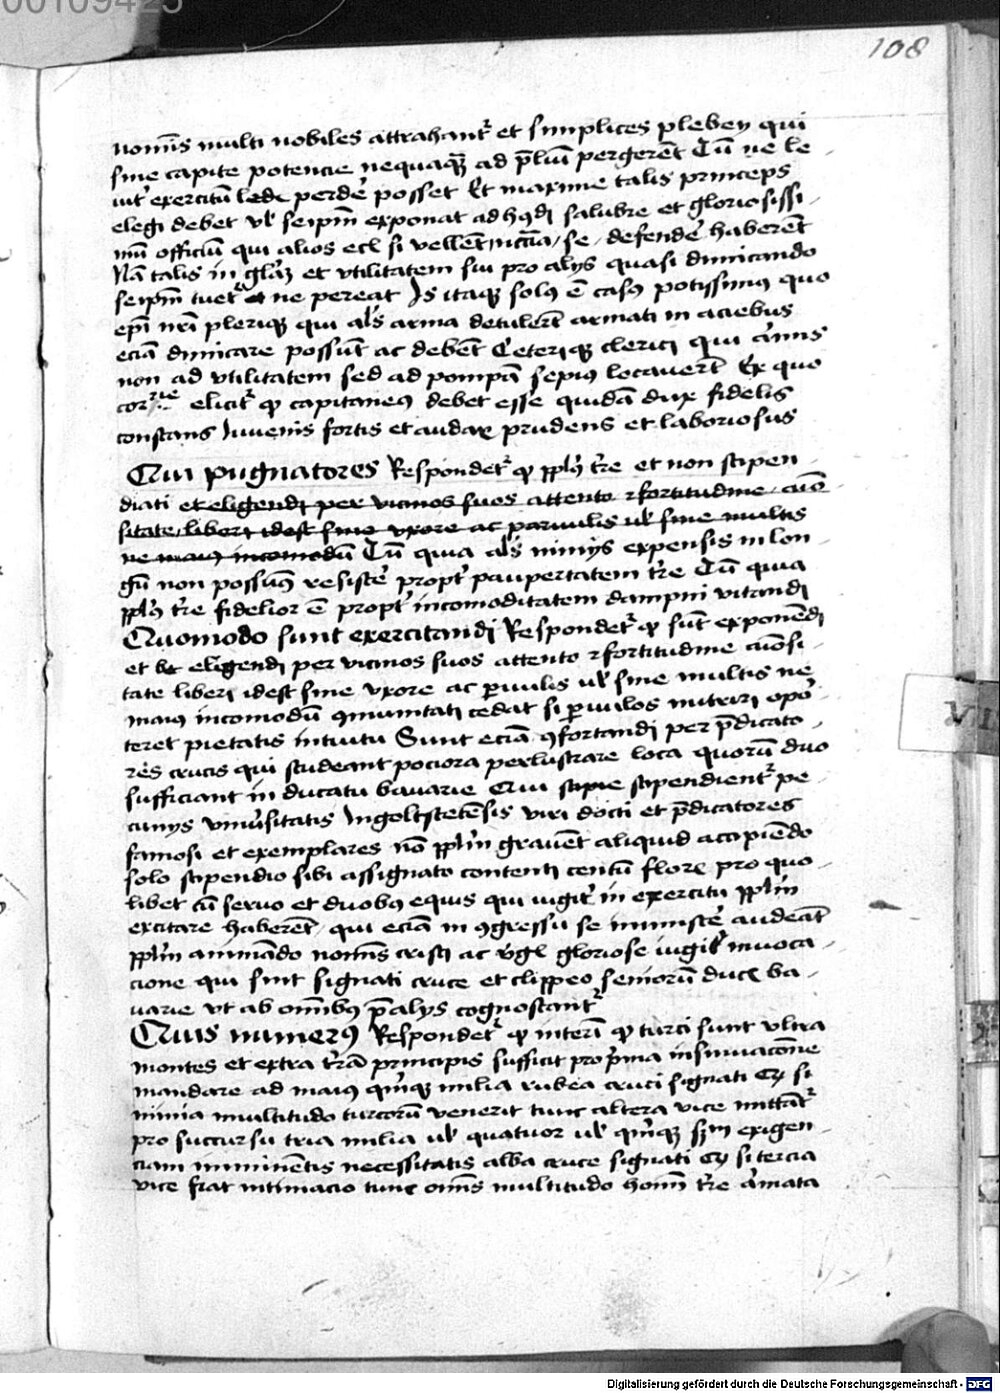 00109425
108
nomīs multi nobiles attrahantr et simplices plebey qui
sine capite potencie nequaqz ad plīu pergerēt Cū ne le
exercitū perde posset Et maxime talis princeps
elegi debet vl seipm exponat ad salubre et gloriosissi-
mū officiū qui alios ecl si vellēt se defendē haberēt
Nā talis in glaz et utilitatem sui pro alys quasi dimicando
seipm tuetr ne pereat Is itaqz solq ē casq potissimq quo
epi nri pleriqz qui als arma detulerēt armati in aciebus
eciā dimicare possūt ac debēt Ceteriqz clerici qui
non ad utilitatem sed ad pompā sepiq locauerūt Ex quo
elicitr qp capitaneq debet esse quidā dux fidelis
constans Iuuenis fortis et audax prudens et laboriosus
Qui pugnatores Respondetr qp pplq tre et non stipen
diati et eligendi per vicinos suos attento fortitudine
sitate liberi idest sine vxore ac paruulis vl sine multis
ne maiq incomodū Cū quia als nimys expensis in lon-
gū non possūt resistē proptr paupertatem tre Cū quia
pplq tre fidelior ē proptr incomoditatem dampni vitandi
Quomodo sunt exercitandi Respondetr qp sūt exponēdi
et eligendi per vicinos suos attento fortitudine
tate liberi idest sine vxore ac puulis vl sine multis ne
maiq incomodū 9munitati cedat si puulos nutriri opō
teret pietatis intuitu Sunt eciā 9fortandi per pdicato-
res crucis qui studeant pociora perlustrare loca quorū duo
sufficiant in ducatu bauarie Qui stipendientr pe-
cunys vniusitatis Ingolstetēsis viri docti et pdicatores
famosi et exemplares nō pplm grauēt aliquid accipiēdo
solo stipendio sibi assignato contenti centū floreno pro quo-
libet cū seruo et duobq equis qui iugitr in exercitu pplm
excitare haberēt qui eciā in 9gressu se inmiscē audeāt
pplm animādo nomīs cristi ac vgl gloriose iugitr inuoca-
cione qui sint signati cruce et clippeo seniorū ducū ba-
uarie vt ab omībq palys cognoscantr
Cuius numerq Respondetr qp interī qp turci sunt vltra
montes et extra trā principis sufficit pro pma insinuacōne
mandare ad maiq qinqz milia rubea cruci signati Et si
nimia multitudo turcorū venerit tunc altera vice mittātr
pro succursu tria milia vl quatuor vl qinqz scdm exigen-
ciam imminētis necessitatis alba cruce signati Et si tercia
vice fiat intimacio tunc omīs multitudo homī tre armata
Digitalisierung gefördert durch die Deutsche Forschungsgemeinschaft - DFG